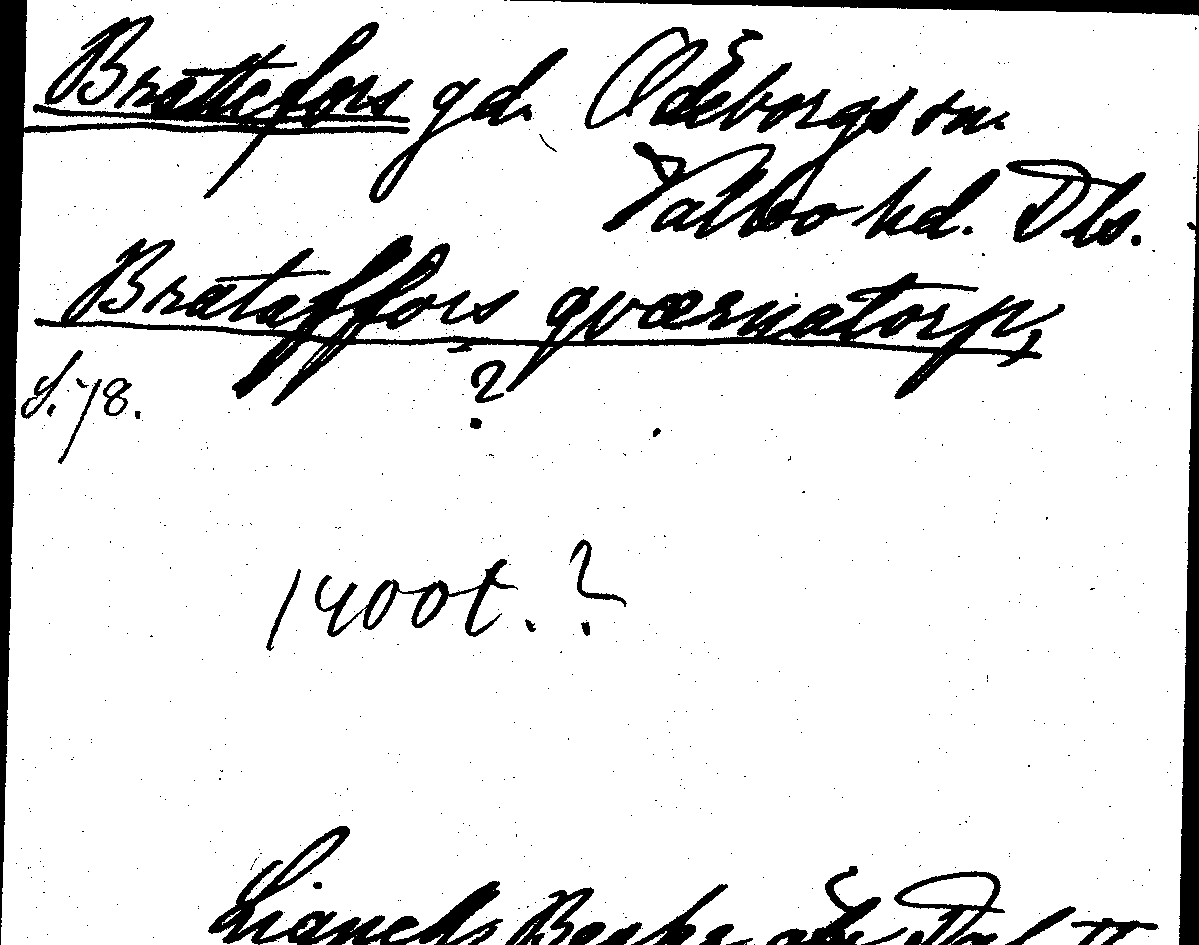 Brattefors gd. Ödeborgs sn.
Valbo hd. Dls.
Brataffors qværnatorp,
S. 78. ?
1400t. ?
Lignells Beskr. öfv. Dal II